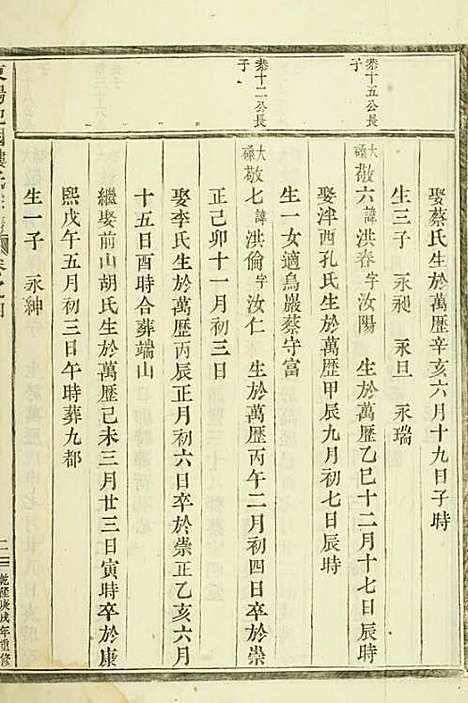 娶蔡氏生於萬歷辛亥六月十九日子時
生三子 永昶 永旦 永瑞
恭十五公長子
大祿敬六諱洪春字汝陽 生於萬歷乙巳十二月十七日辰時
娶泮西孔氏生於萬歷甲辰九月初七日辰時
生一女適鳥巖蔡守富
恭十二公長子
大祿敬七諱洪倫字汝仁 生於萬歷丙午二月初四日卒於崇
正己卯十一月初三日
娶李氏生於萬歷丙辰正月初六日卒於崇正乙亥六月
十五日酉時合葬端山
繼娶前山胡氏生於萬歷己未三月廿三日寅時卒於康
熙戊午五月初三日午時葬九都
生一子 永紳
東陽
乾隆庚戌年重修